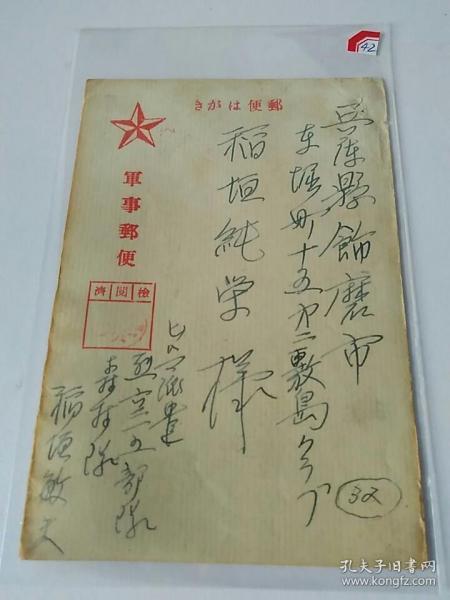 42
郵便はがき
軍事郵便
検閲済
兵庫縣飾磨市
東堀町十五ノ二敷島クラブ
稲垣純栄様
ヒハ派遣
烈六二五部隊
森村隊
稲垣敏夫
32
孔夫子旧书网
www.kongfz.com